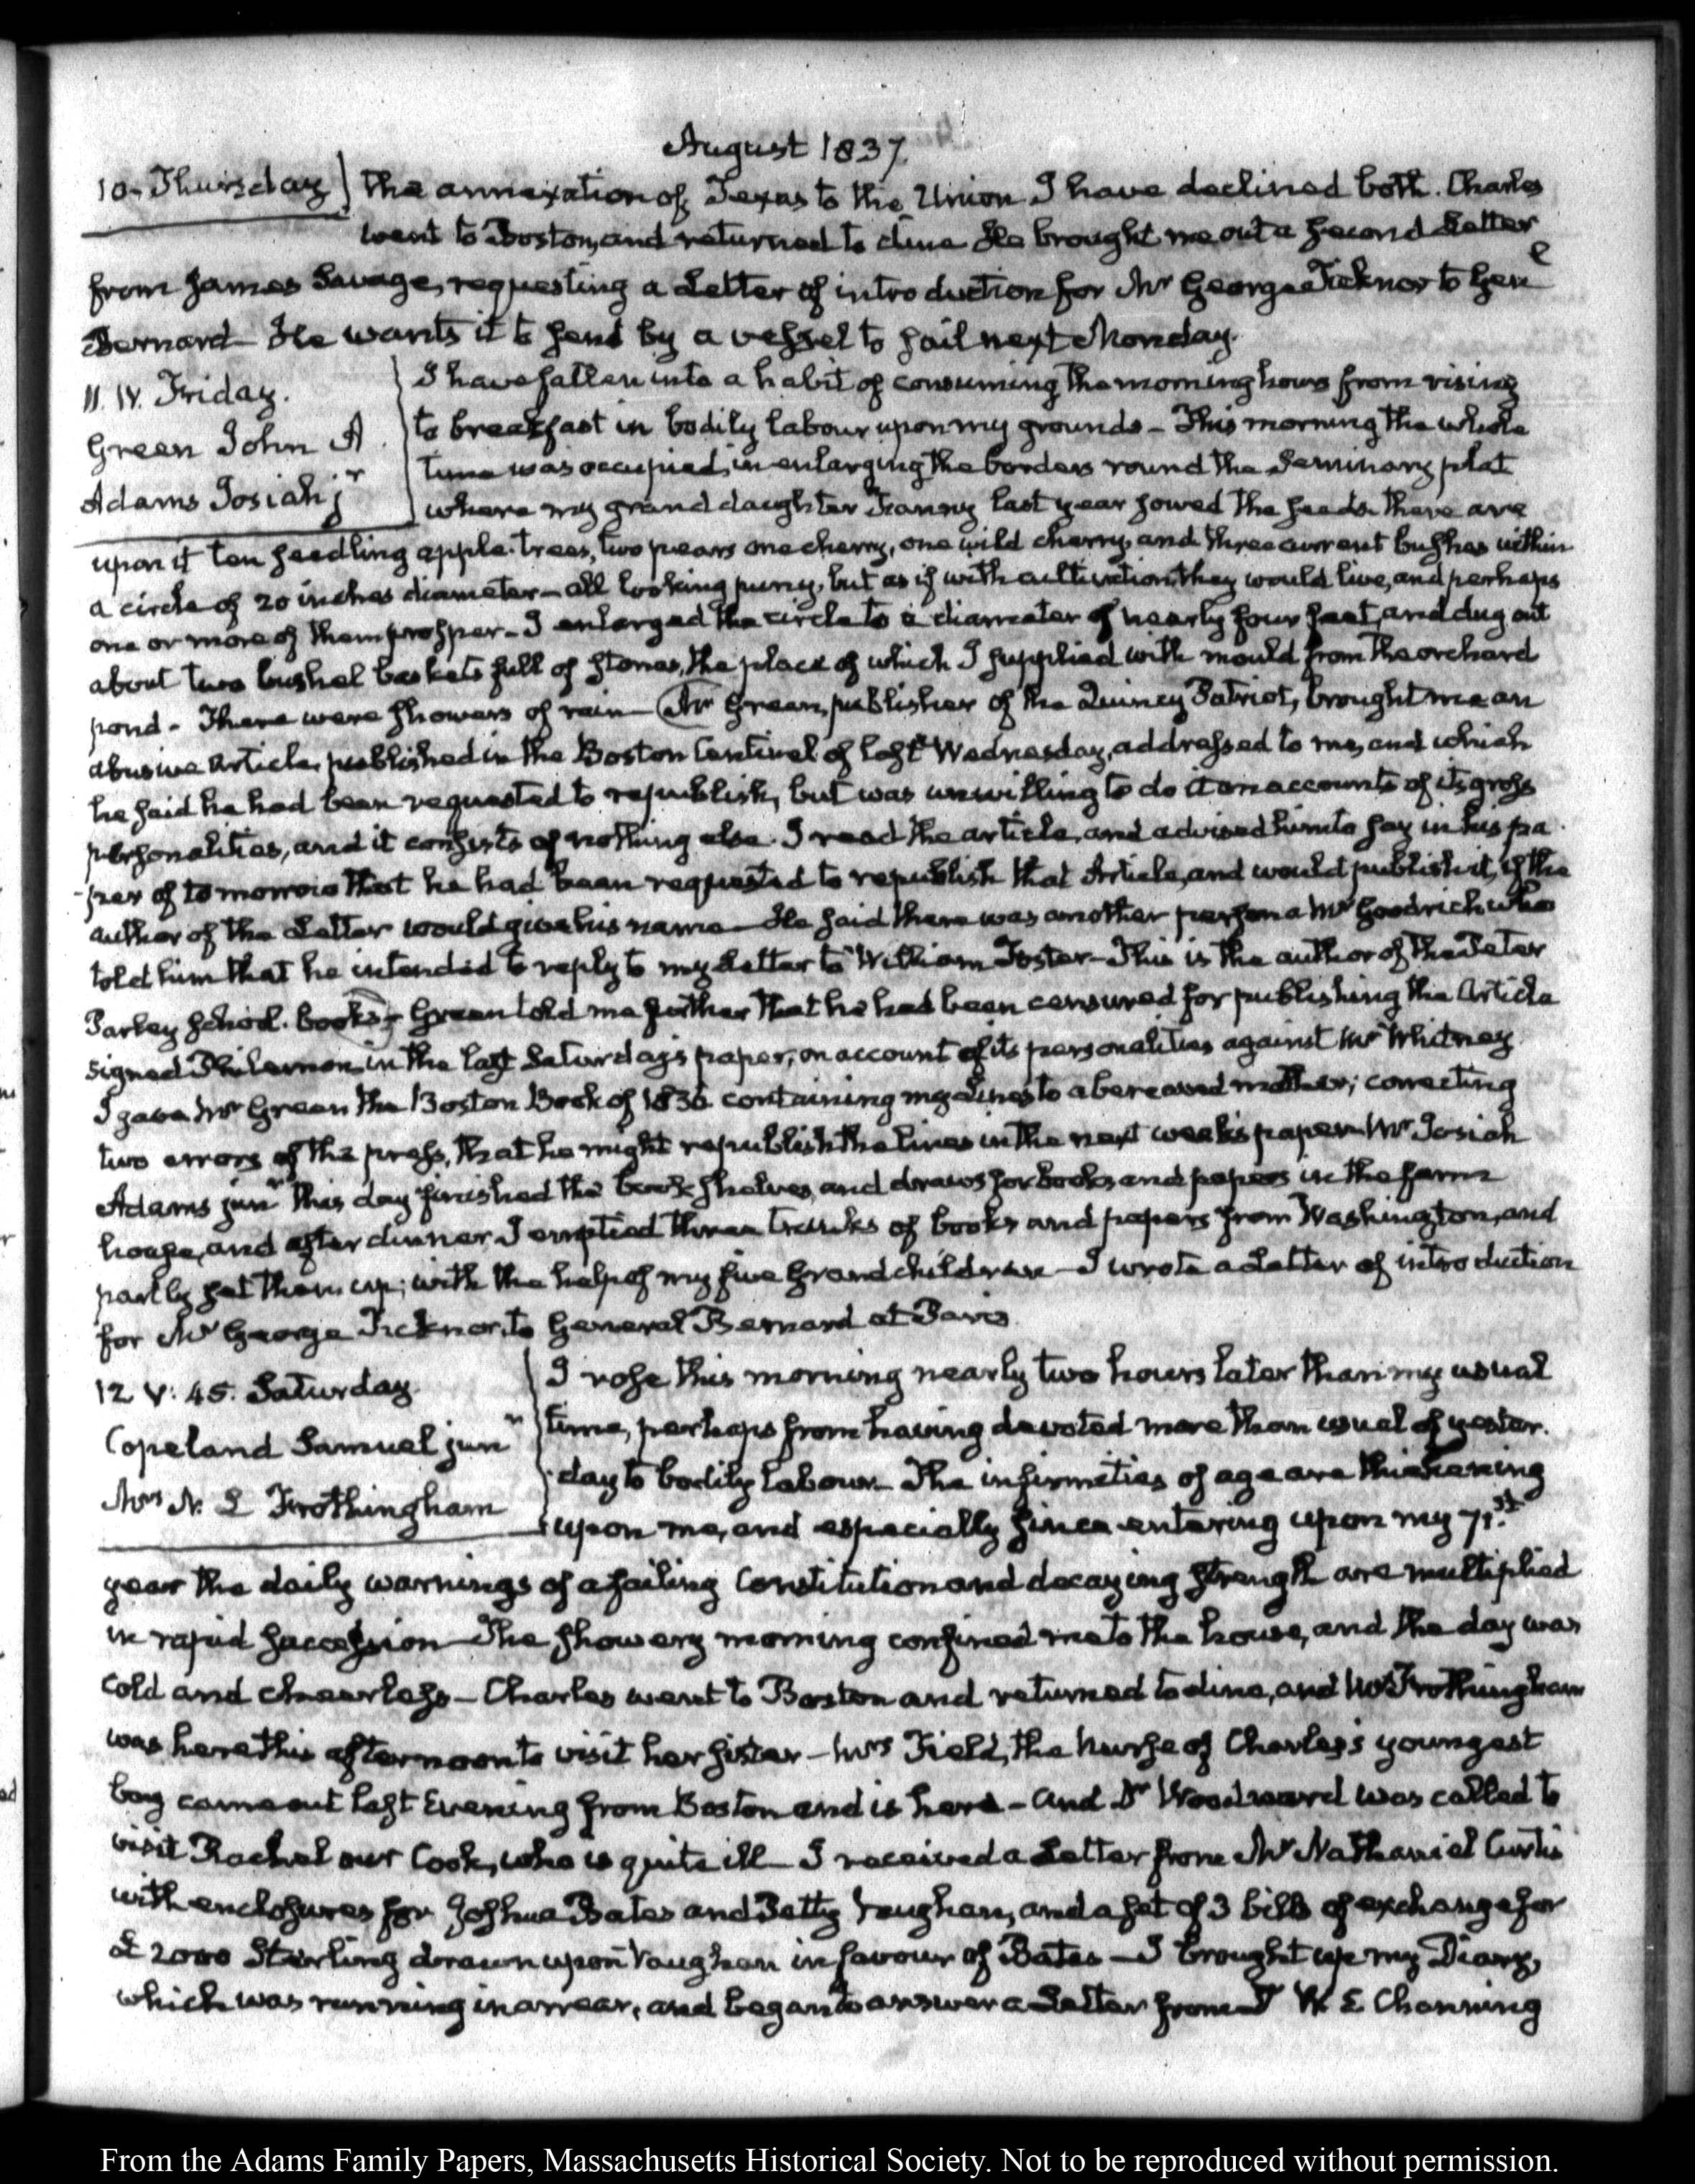 August 1837.
10. Thursday } the annexation of Texas to the Union I have declined both. Charles
went to Boston, and returned to dine He brought me out a second Letter
from James Savage, requesting a Letter of introduction for Mr George Ticknor to Genl
Bernard— He wants it to send by a vessel to sail next Monday.
11. IV. Friday. } I have fallen into a habit of consuming the morning hours from rising
Green John A } to breakfast in bodily labour upon my grounds— This morning the whole
time was occupied, in enlarging the borders round the Seminary plat
Adams Josiah jr } where my grand daughter Fanny last year sowed the seeds. There are
upon it ten seedling apple-trees, two pears one cherry, one wild cherry, and three currant bushes within
a circle of 20 inches diameter— all looking puny, but as if with cultivation they would live, and perhaps
one or more of them prosper— I enlarged the circle to a diameter of nearly four feet, and dug out
about two bushel baskets full of stones, the place of which I supplied with mould from the orchard
pond— There were showers of rain— Mr Green, publisher of the Quincy Patriot, brought me an
abusive Article, published in the Boston Centinel of last Wednesday, addressed to me, and which
he said he had been requested to republish, but was unwilling to do it on accounts of its gross
personalities, and it consists of nothing else. I read the article, and advised him to say in his pa-
-per of to morrow that he had been requested to republish that Article, and would publish it, if the
author of the Letter would give his name— He said there was another person a Mr Goodrich who
told him that he intended to reply to my Letter to William Foster— This is the author of the Peter
Parley school-books— Green told me further that he had been censured for publishing the Article
signed Philemon in the last Saturday's paper, on account of its personalities against Mr Whitney
I gave Mr Green the Boston Book of 1836 containing my Lines to a bereaved mother; correcting
two errors of the press, that he might republish the lines in the next week's paper— Mr Josiah
Adams junr this day finished the book shelves, and draws for books and papers in the farm
house, and after dinner I emptied three trunks of books and papers from Washington, and
partly set them up; with the help of my five Grandchildren— I wrote a Letter of introduction
for Mr George Ticknor, to General Bernard at Paris
12 V: 45. Saturday. } I rose this morning nearly two hours later than my usual
Copeland Samuel junr } time, perhaps from having devoted more than usual of yester-
-day to bodily labour— The infirmities of age are thickening
Mrs N. L Frothingham } upon me, and especially since entering upon my 71.st
year the daily warnings of a failing Constitution and decaying strength are multiplied
in rapid succession— The showery morning confined me to the house, and the day was
cold and cheerless— Charles went to Boston and returned to dine, and Mrs Frothingham
was here this afternoon to visit her sister— Mrs Field, the nurse of Charles's youngest
boy came out last Evening from Boston and is here— and Dr Woodward was called to
visit Rachel our Cook, who is quite ill— I received a Letter from Mr Nathaniel Curtis
with enclosures for Joshua Bates and Petty Vaughan, and a set of 3 bills of exchange for
£ 2000 Sterling drawn upon Vaughan in favour of Bates— I brought up my Diary,
which was running in arrear, and began to answer a Letter from Dr W. E Channing
From the Adams Family Papers, Massachusetts Historical Society. Not to be reproduced without permission.